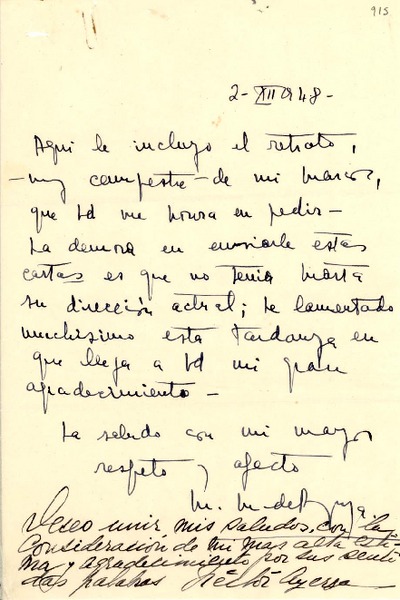 915
2-XII948-
Aqui le incluyo el retrato,
-muy campestre- de mi
que Ud me honra en pedir-
La demora en enviarle estas
cartas es que no tenia hasta
su dirección actual; he lamentado
muchisimo esta tardanza en
que llega a Ud mi gran
agradecimiento-
La saludo con mi mayor
respeto y afecto
M. M. de
Deseo unir mis saludos, con la
Consideración de mi mas alta esti-
ma y agradecimiento por sus senti-
das palabras Héctor Ayerza